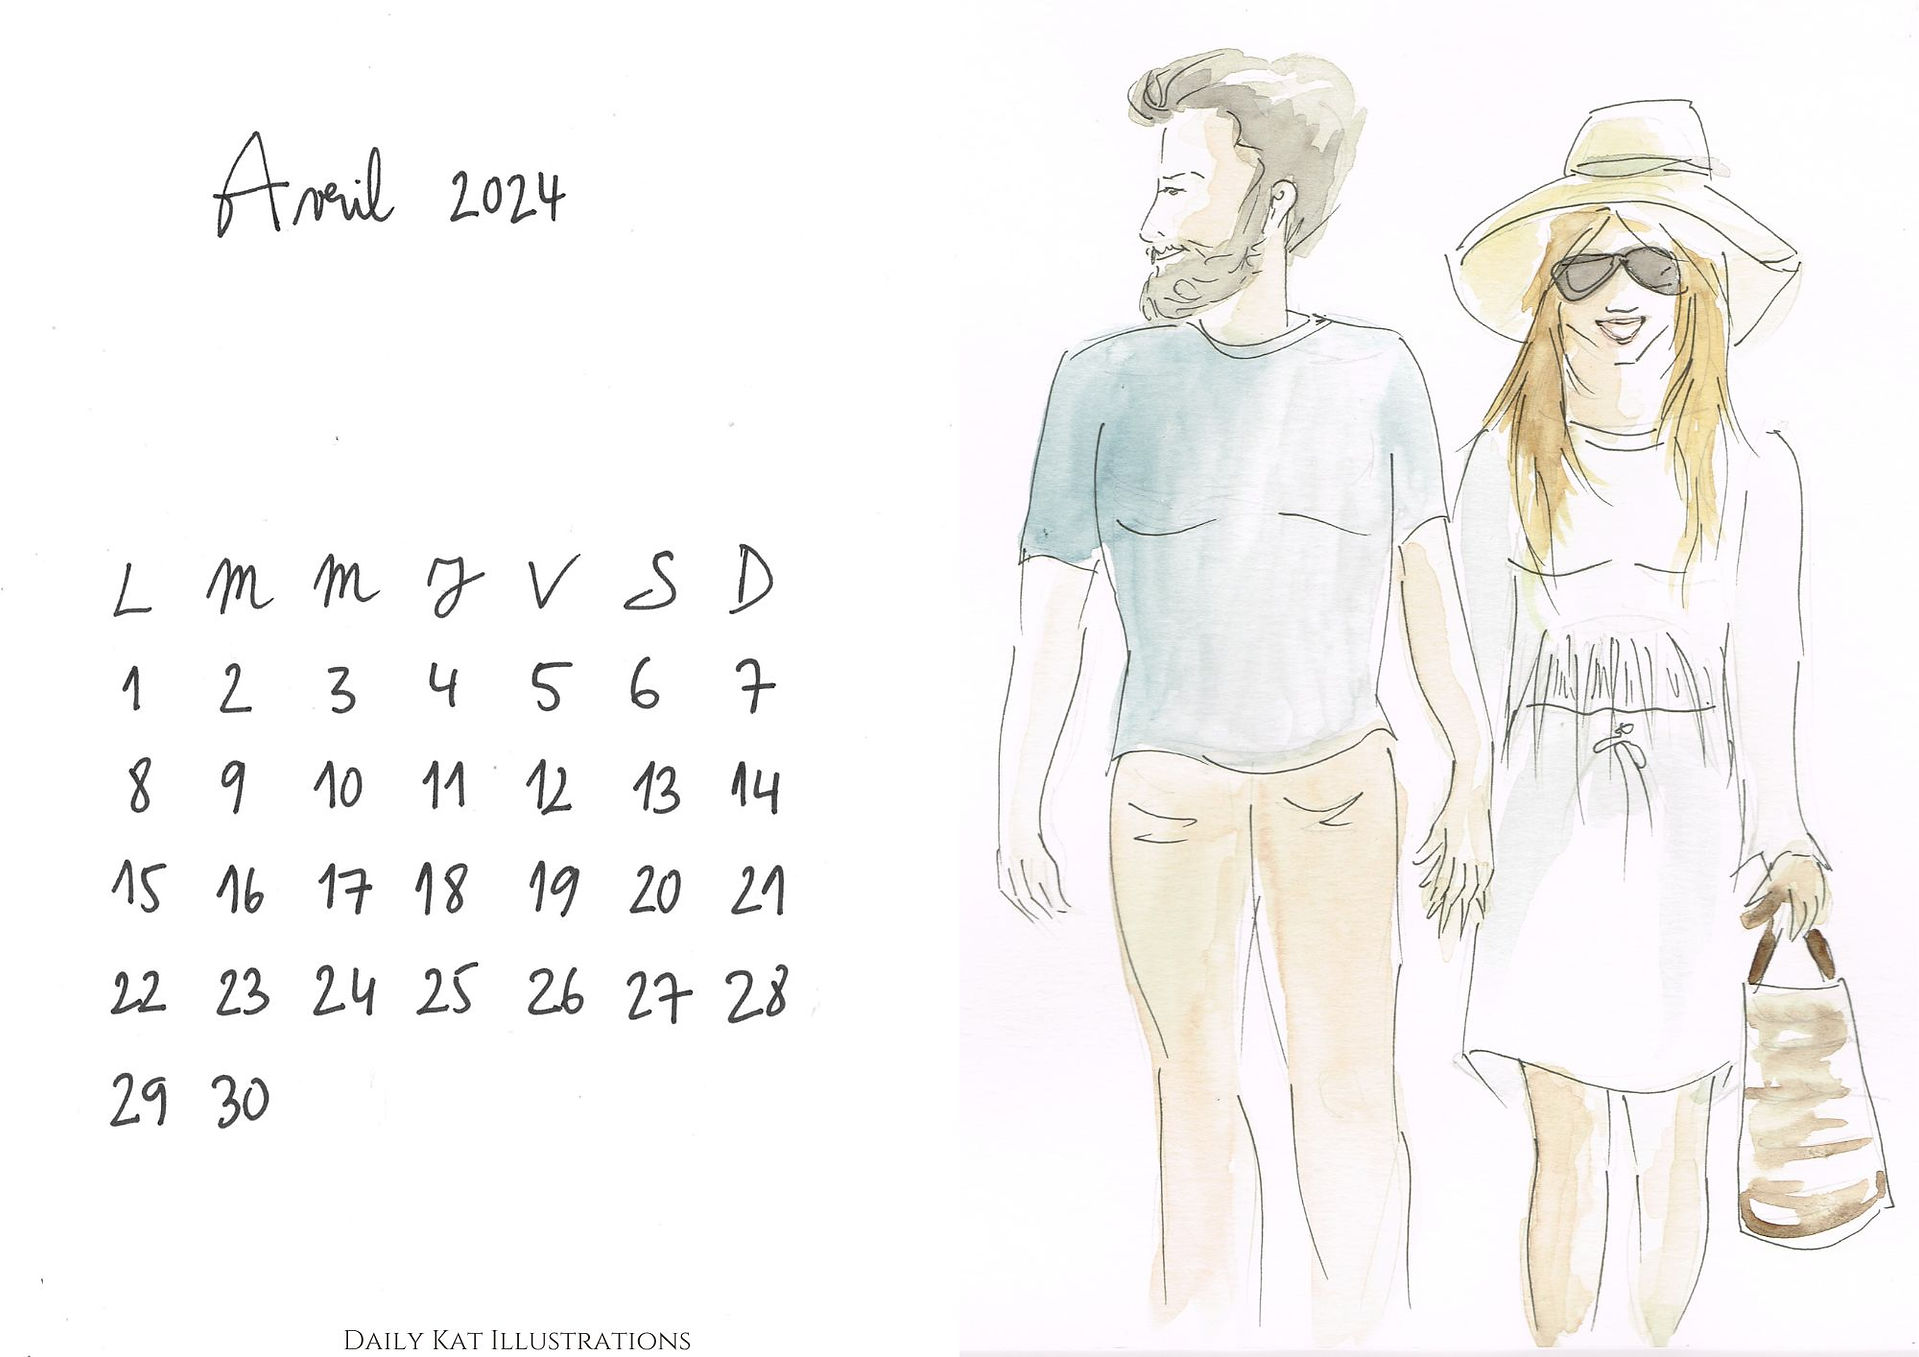 Avril 2024
L M M J V S D
1 2 3 4 5 6 7
8 9 10 11 12 13 14
15 16 17 18 19 20 21
22 23 24 25 26 27 28
29 30
Daily Kat Illustrations